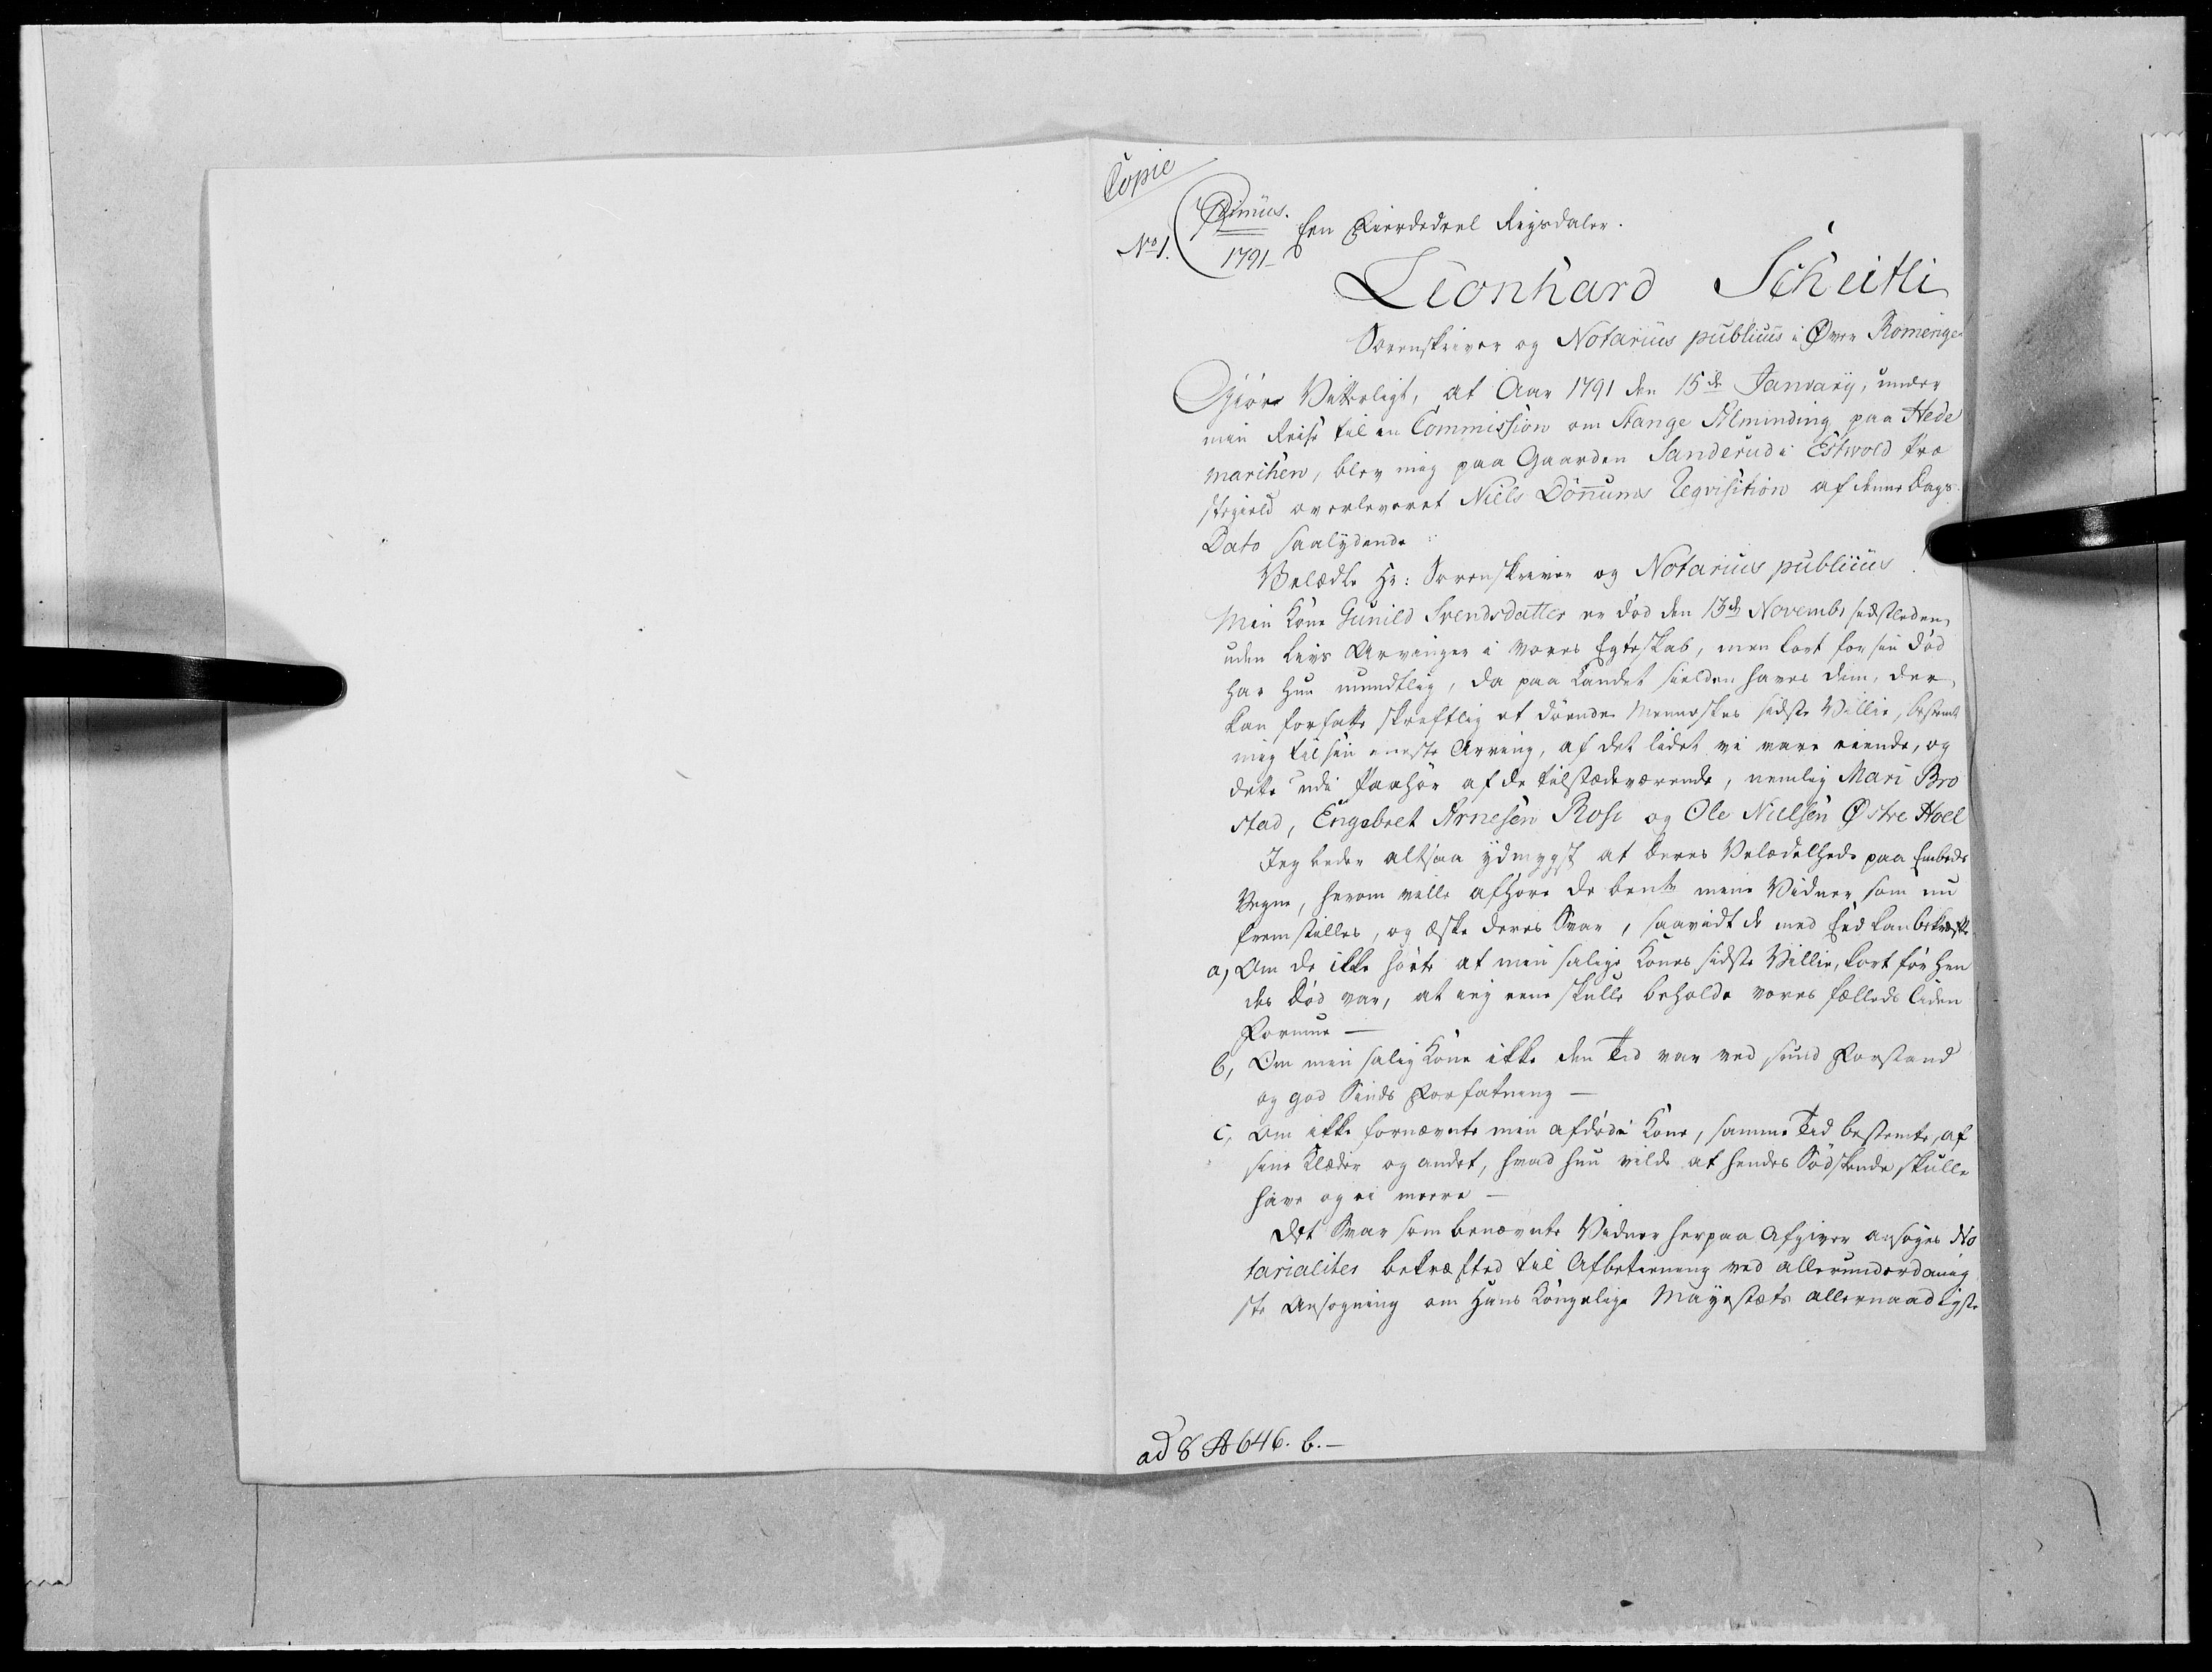 Copie
No 1. Primus. 1791 Een Fierdedeel Rigsdaler.
Leonhard Scheitli
Sorenskriver og Notarius publicus i Øvre Romerige
Giöre Vitterligt, at Aar 1791 den 15de Januarij, under
min Reise til en Commission om Stange Alminding paa Hede
marchen, blev mig paa Gaarden Sanderud i Estvold Præ
stegield overleveret Niels Dönnums Reqvisition af denne Dags
Dato saalydende:
Velædle Hr: Sorenskriver og Notarius publicus
Min Kone Gunild Svendsdatter er död den 13de Novembr sidstleden,
uden Livs Arvinger i vores Egteskab, men kort for sin Död
har hun mundtlig, da paa Landet sielden haves dem, der
kan forfatte skriftlig et döende Menneskes sidste Villie, bestemt
mig til sin eneste Arving, af det lidet vi vare eiende, og
dette udi Paahör af de tilstædeværende, nemlig Mari Bro
stad, Engebret Arnesen Rose og Ole Nielsen Østre Hoel
Jeg beder altsaa ydmygst at Deres Velædelhed paa Embeds
Vegne, herom ville afhöre de benævnte mine Vidner som nu
fremstilles, og æske deres Svar, saavidt de med Eed kan bekræfte
a) Om de ikke hörte at min salige Kones sidste Villie, kort för hen
des Död var, at jeg ene skulle beholde vores fælleds liden
Formue —
b, Om min salig Kone ikke den Tid var ved sund Forstand
og god Sinds Forfatning —
c, Om ikke fornævnte min afdöde Kone, samme Tid bestemte, af
sine Klæder og andet, hvad hun vilde at hendes Södskende skulle
have og ei meere —
Det Svar som benævnte Vidner herpaa Afgiver ansöges No
tarialiter bekræfted til Afbetienning ved allerunderdanig
ste Ansögning om Hans Kongelige Mayestæts allernaadigste
ad 8 A 646. b. —